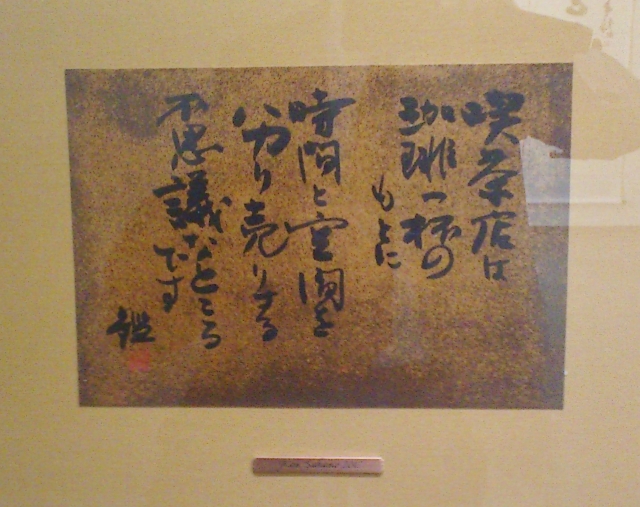 喫茶店は
珈琲一杯の
もとに
時間と空間を
切り売りする
不思議なところ
です
鑑